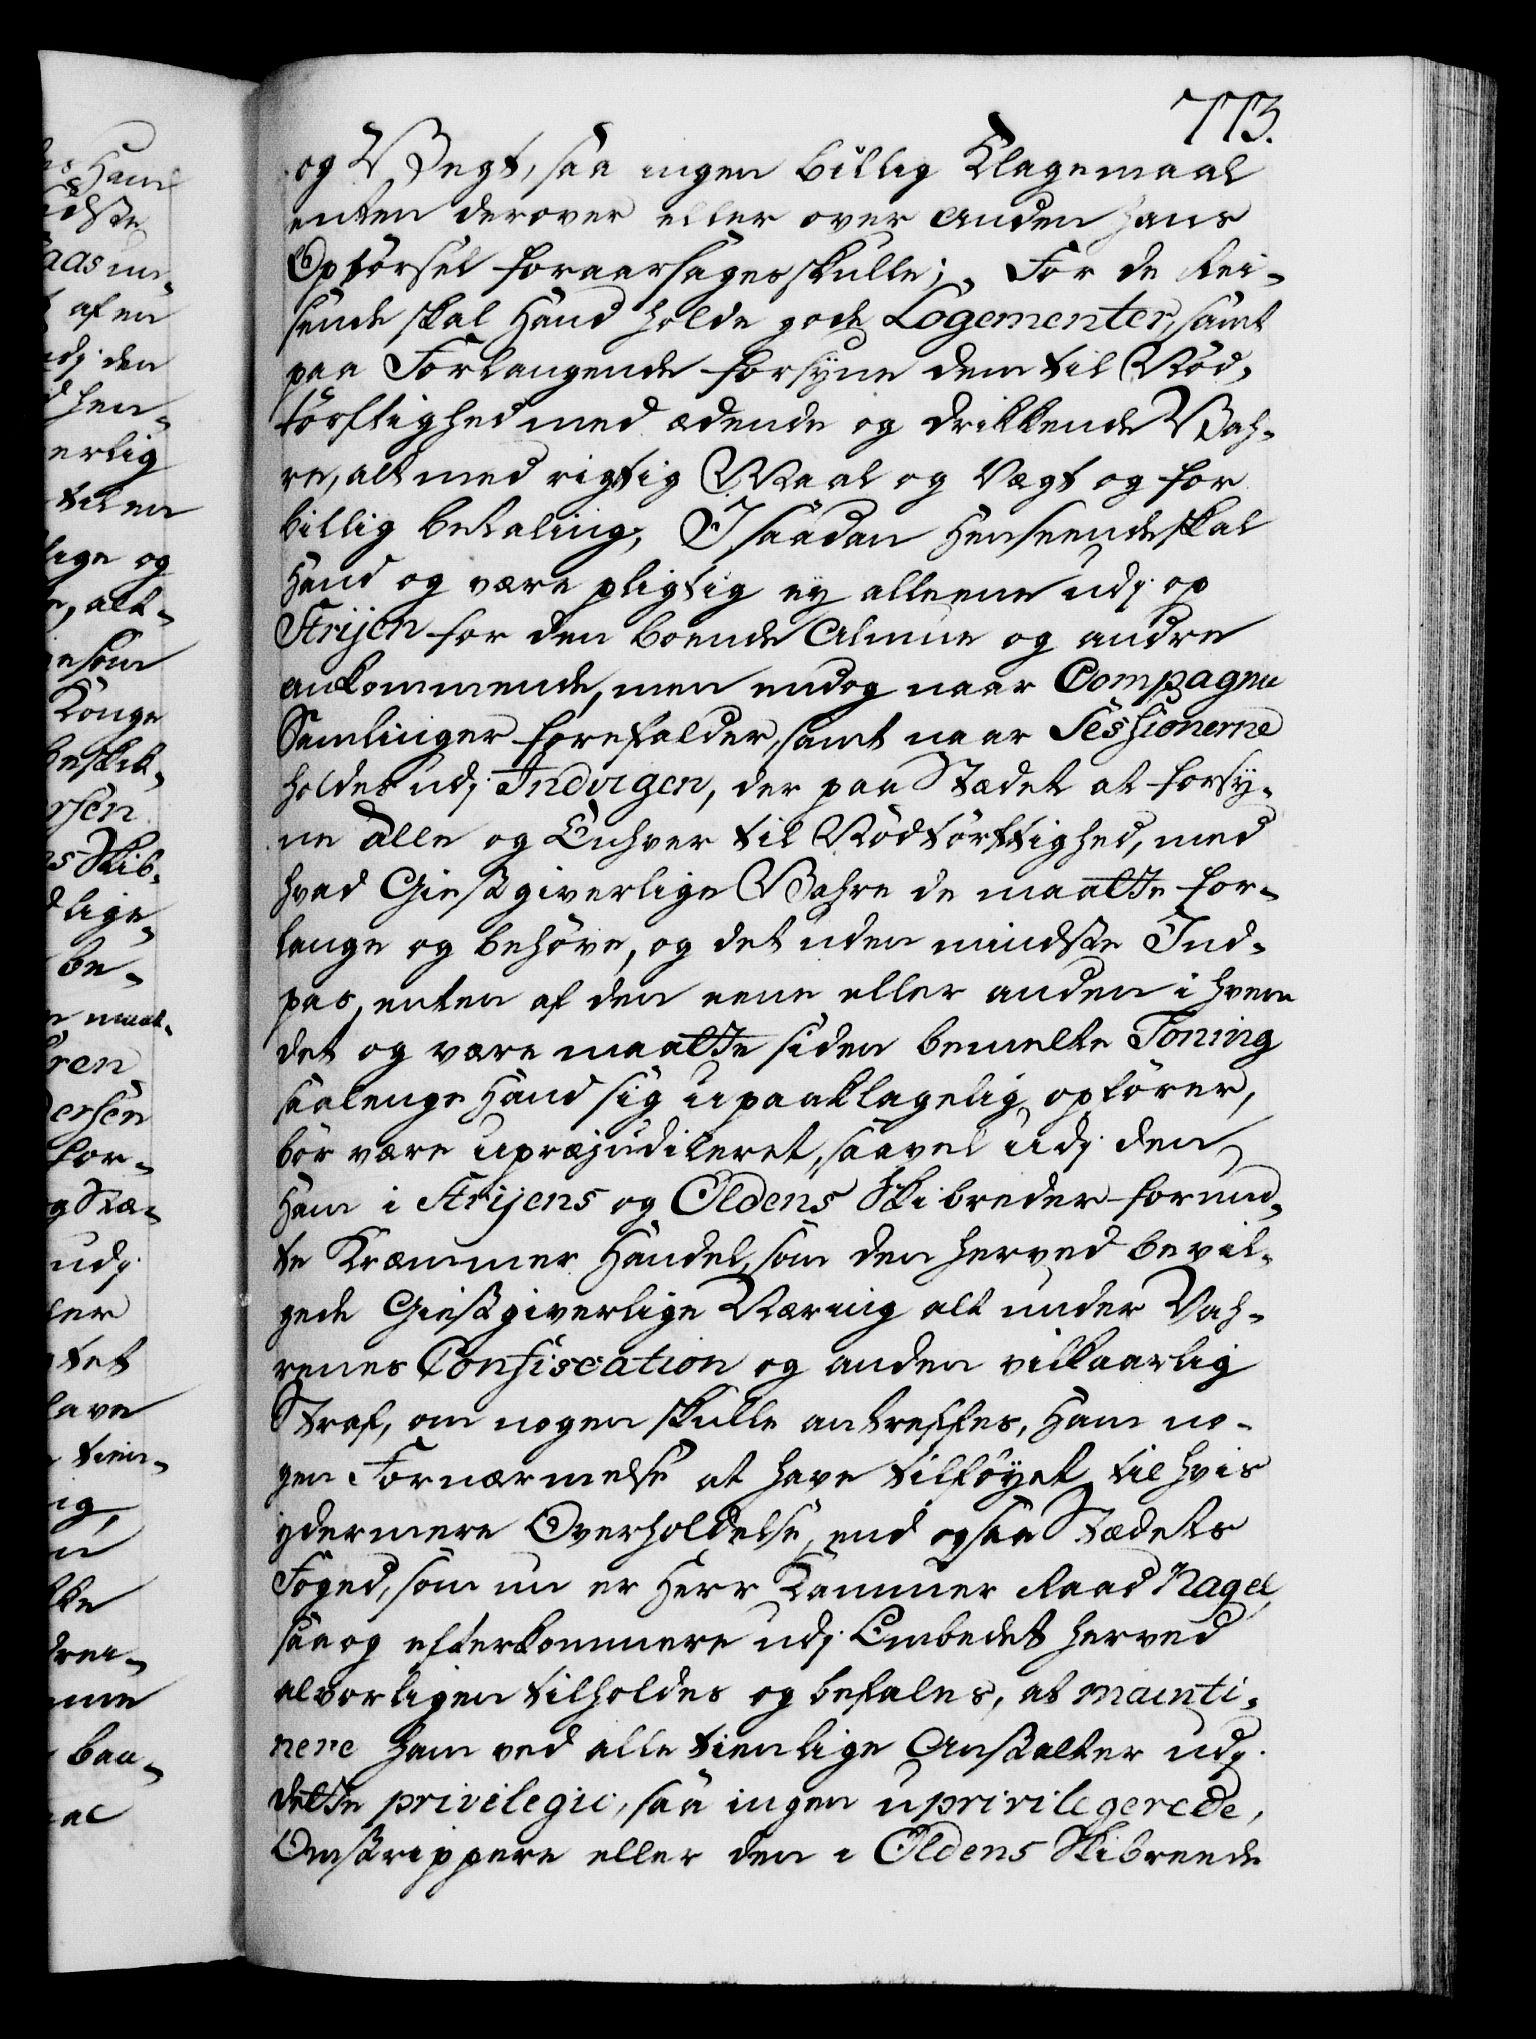 773.
og Vegt, saa ingen billig Klagemaal
enten derover eller over anden hans
Opførsel foraarsages skulle; For de Rei-
sende skal Hand holde gode Logementer, samt
paa Forlangende forsyne dem til Nød-
tørftighed med ædende og drikkende Vah-
re, alt med rigtig Maal og Vegt og for
billig betaling, I saadan Henseende skal
Hand og være pligtig ey alleene udj op
Strijen for den boende Almue og andre
ankommende, men endog naar Compagnie
Samlinger forefalder, samt naar Sessionerne
holdes udj Indvigen, der paa Stædet at forsy-
ne Alle og Enhver til Nødtørftighed, med
hvad Giestgiverlige Vahre de maatte for-
lange og behøve, og det uden mindste Ind-
pas, enten af den eene eller anden i hvem
det og være maatte siden bemelte Toning
saalenge Hand sig upaaklagelig opfører,
bør være upræjudiceret, saavel udj den
Ham i Strijens og Oldens Skibreder forund-
te Kræmmer Handel, som den herved bevil-
gede Giestgiverlige Næring alt under Vah-
renes Confiscation og anden vilkaarlig
Straf, om nogen skulle antreffes, Ham no-
gen Fornærmelse at have tilføyet, til hvis
ydermere Overholdelse, end ogsaa Stædets
Foged, som nu er Herr Kammer Raad Nagel,
saa og efterkommere udj Embedet herved
alvorligen tilholdes og befales, at mainti-
nere Ham ved alle tienlige Anstalter udj
dette privilegie, saa ingen uprivilegerede,
Omstrippere eller den i Oldens Skibreede